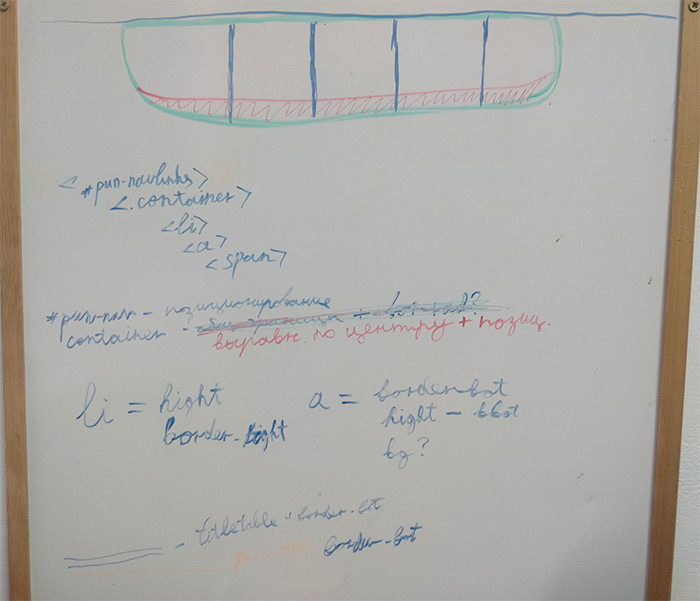 <#pun-navlinks>
<.container>
<li>
<a>
<span>
#pun-nav - позиционирование
container -
выравн. по центру + позиц.
li = hight
border-right
a = border-bot
hight - bbot
bg?
border-bot
border-bot